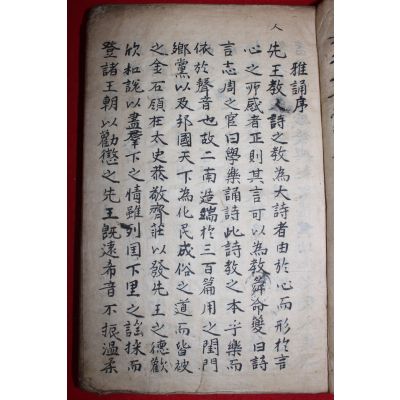 人
雅誦序
先王教人詩之教為大詩者由於心而形於言
心之所感者正則其言可以為教舜命夔曰詩
言志周之官曰學樂誦詩此詩教之本乎樂而
依於聲音也故二南造端於三百篇用之閨門
鄉黨以及邦國天下為化民成俗之道而皆被
之金石領在太史恭敬齊莊以發先王之德歡
欣和說以盡群下之情雖列國下里之謠採而
登諸王朝以勸懲之先王既遠希音不振溫柔